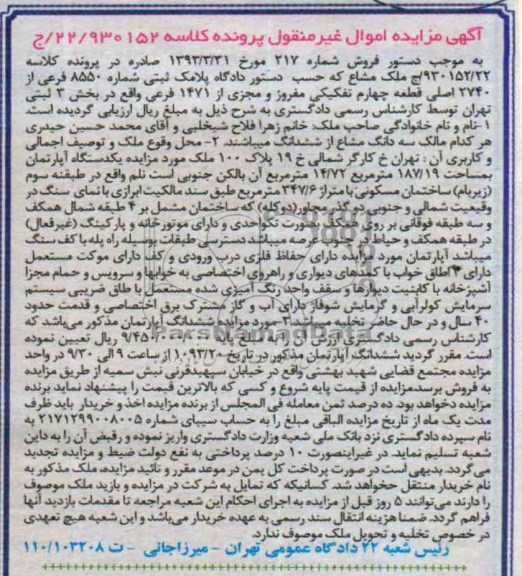 آگهی مزایده اموال غیرمنقول پرونده کلاسه ۲۲/۹۳۰۱۵۲/ج
به موجب دستور فروش شماره ۲۱۷ مورخ ۱۳۹۳/۳/۳۱ صادره در پرونده کلاسه
۹۳۰۱۵۲/۲۲/ج ملک مشاع که حسب دستور دادگاه پلامک ثبتی شماره ۸۵۵۰ فرعی از
۲۷۴۰ اصلی قطعه چهارم تفکیکی مفروز و مجزی از ۱۴۷۱ فرعی واقع در بخش ۳ ثبتی
تهران توسط کارشناس رسمی دادگستری به شرح ذیل به مبلغ ریال ارزیابی گردیده است.
۱-نام و نام خانوادگی صاحب ملک: خانم زهرا فلاح شیخلبی و آقای محمد حسین حیدری
هر کدام مالک سه دانگ مشاع از ششدانگ میباشند. ۲- محل وقوع ملک و توصیف اجمالی
و کاربری آن : تهران خ کارگر شمالی خ ۱۹ پلاک ۱۰۰ ملک مورد مزایده یکدستگاه آپارتمان
بمساحت ۱۸۷/۱۹ مترمربع ۱۴/۷۲ مترمربع آن بالکن جنوبی است نلم واقع در طبقنه سوم
(زیربام) ساختمان مسکونی با متراژ ۳۴۷/۶ مترمربع طبق سند مالکیت ابرازی با نمای سنگ در
وقعیت شمالی و جنوبی دو گذر مجاور (دو کله) که ساختمان مشتمل بر ۴ طبقه شمال همکف
و سه طبقه فوقانی بر روی همکف بصورت تکواحدی و دارای موتورخانه و پارکینگ (غیرفعال)
در طبقه همکف و حیاط در جنوب عرصه میباشد دسترسی طبقات بوسیله راه پله با کف سنگ
میباشد آپارتمان مورد مزایده دارای حفاظ فلزی درب ورودی و کف دارای موکت مستعمل
دارای ۳ اطاق خواب با کمدهای دیواری و راهروی اختصاصی به خوابها و سرویس و حمام مجزا
آشپزخانه با کابنیت دیوارها و سقف واحد رنگ آمیزی شده مستعمل با طاق ضریبی سیستم
سرمایش کولرآبی و گرمایش شوفاژ دارای آب و گاز مشترک برق اختصاصی و قدمت حدود
۴۰ سال و در حال حاضر تخلیه میباشد ۳-مورد مزایده ششدانگ آپارتمان مذکور میباشد که
کارشناس رسمی دادگستری ارزش آن را به مبلغ پایه ریال تعیین نموده
است. مقرر گردید ششدانگ آپارتمان مذکور در تاریخ ۱۰۹۳/۲۰ از ساعت ۹ الی ۹/۳۰ در واحد
مزایده مجتمع قضایی شهید بهشتی واقع در خیابان سپهبدقرنی نبش سمیه از طریق مزایده
به فروش برسد.مزایده از قیمت پایه شروع و کسی که بالاترین قیمت را پیشنهاد نماید برنده
مزایده خواهد بود. ده درصد ثمن معامله فی المجلس از برنده مزایده اخذ و خریدار باید ظرف
مدت یک ماه از تاریخ مزایده الباقی مبلغ را به حساب سیبای شماره ۲۱۷۱۲۹۹۰۸۰۰۵ به
نام سپرده دادگستری نزد بانک ملی شعبه وزارت دادگستری واریز نموده و رقبض آن را به داین
شعبه تسلیم نماید. در غیراینصورت ۱۰ درصد پرداختی به نفع دولت ضبط و مزایده تجدید
می گردد. بدیهی است در صورت پرداخت کل یمن در موعد مقرر و تائید مزایده، ملک مذکور به
نام خریدار منتقل خحواهد شد. کسانیکه که تمایل به شرکت در مزایده و بازید ملک موصوف
را دارند می‌توانند ۵ روز قبل از مزایده به اجرای احکام این شعبه مراجعه تا مقدمات بازدید آنها
فراهم گردد. ضمنا هزینه انتقال سند رسمی به عهده خریدار می‌باشد و این شعبه هیچ تعهدی
در خصوص تخلیه و تحویل ملک موصوف ندارد.
رئیس شعبه ۲۲ دادگاه عمومی تهران - میرزاجانی - ت ۱۱۰/۱۰۳۲۰۸